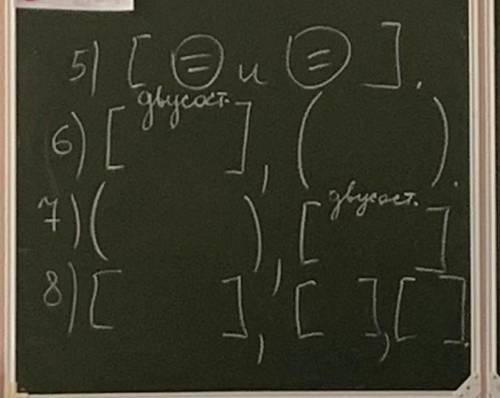 5) [ ⊜ и ⊜ ].
двусост.
6) [ ], ( ).
двусост.
7) ( ), [ ]
8) [ ], [ ], [ ].